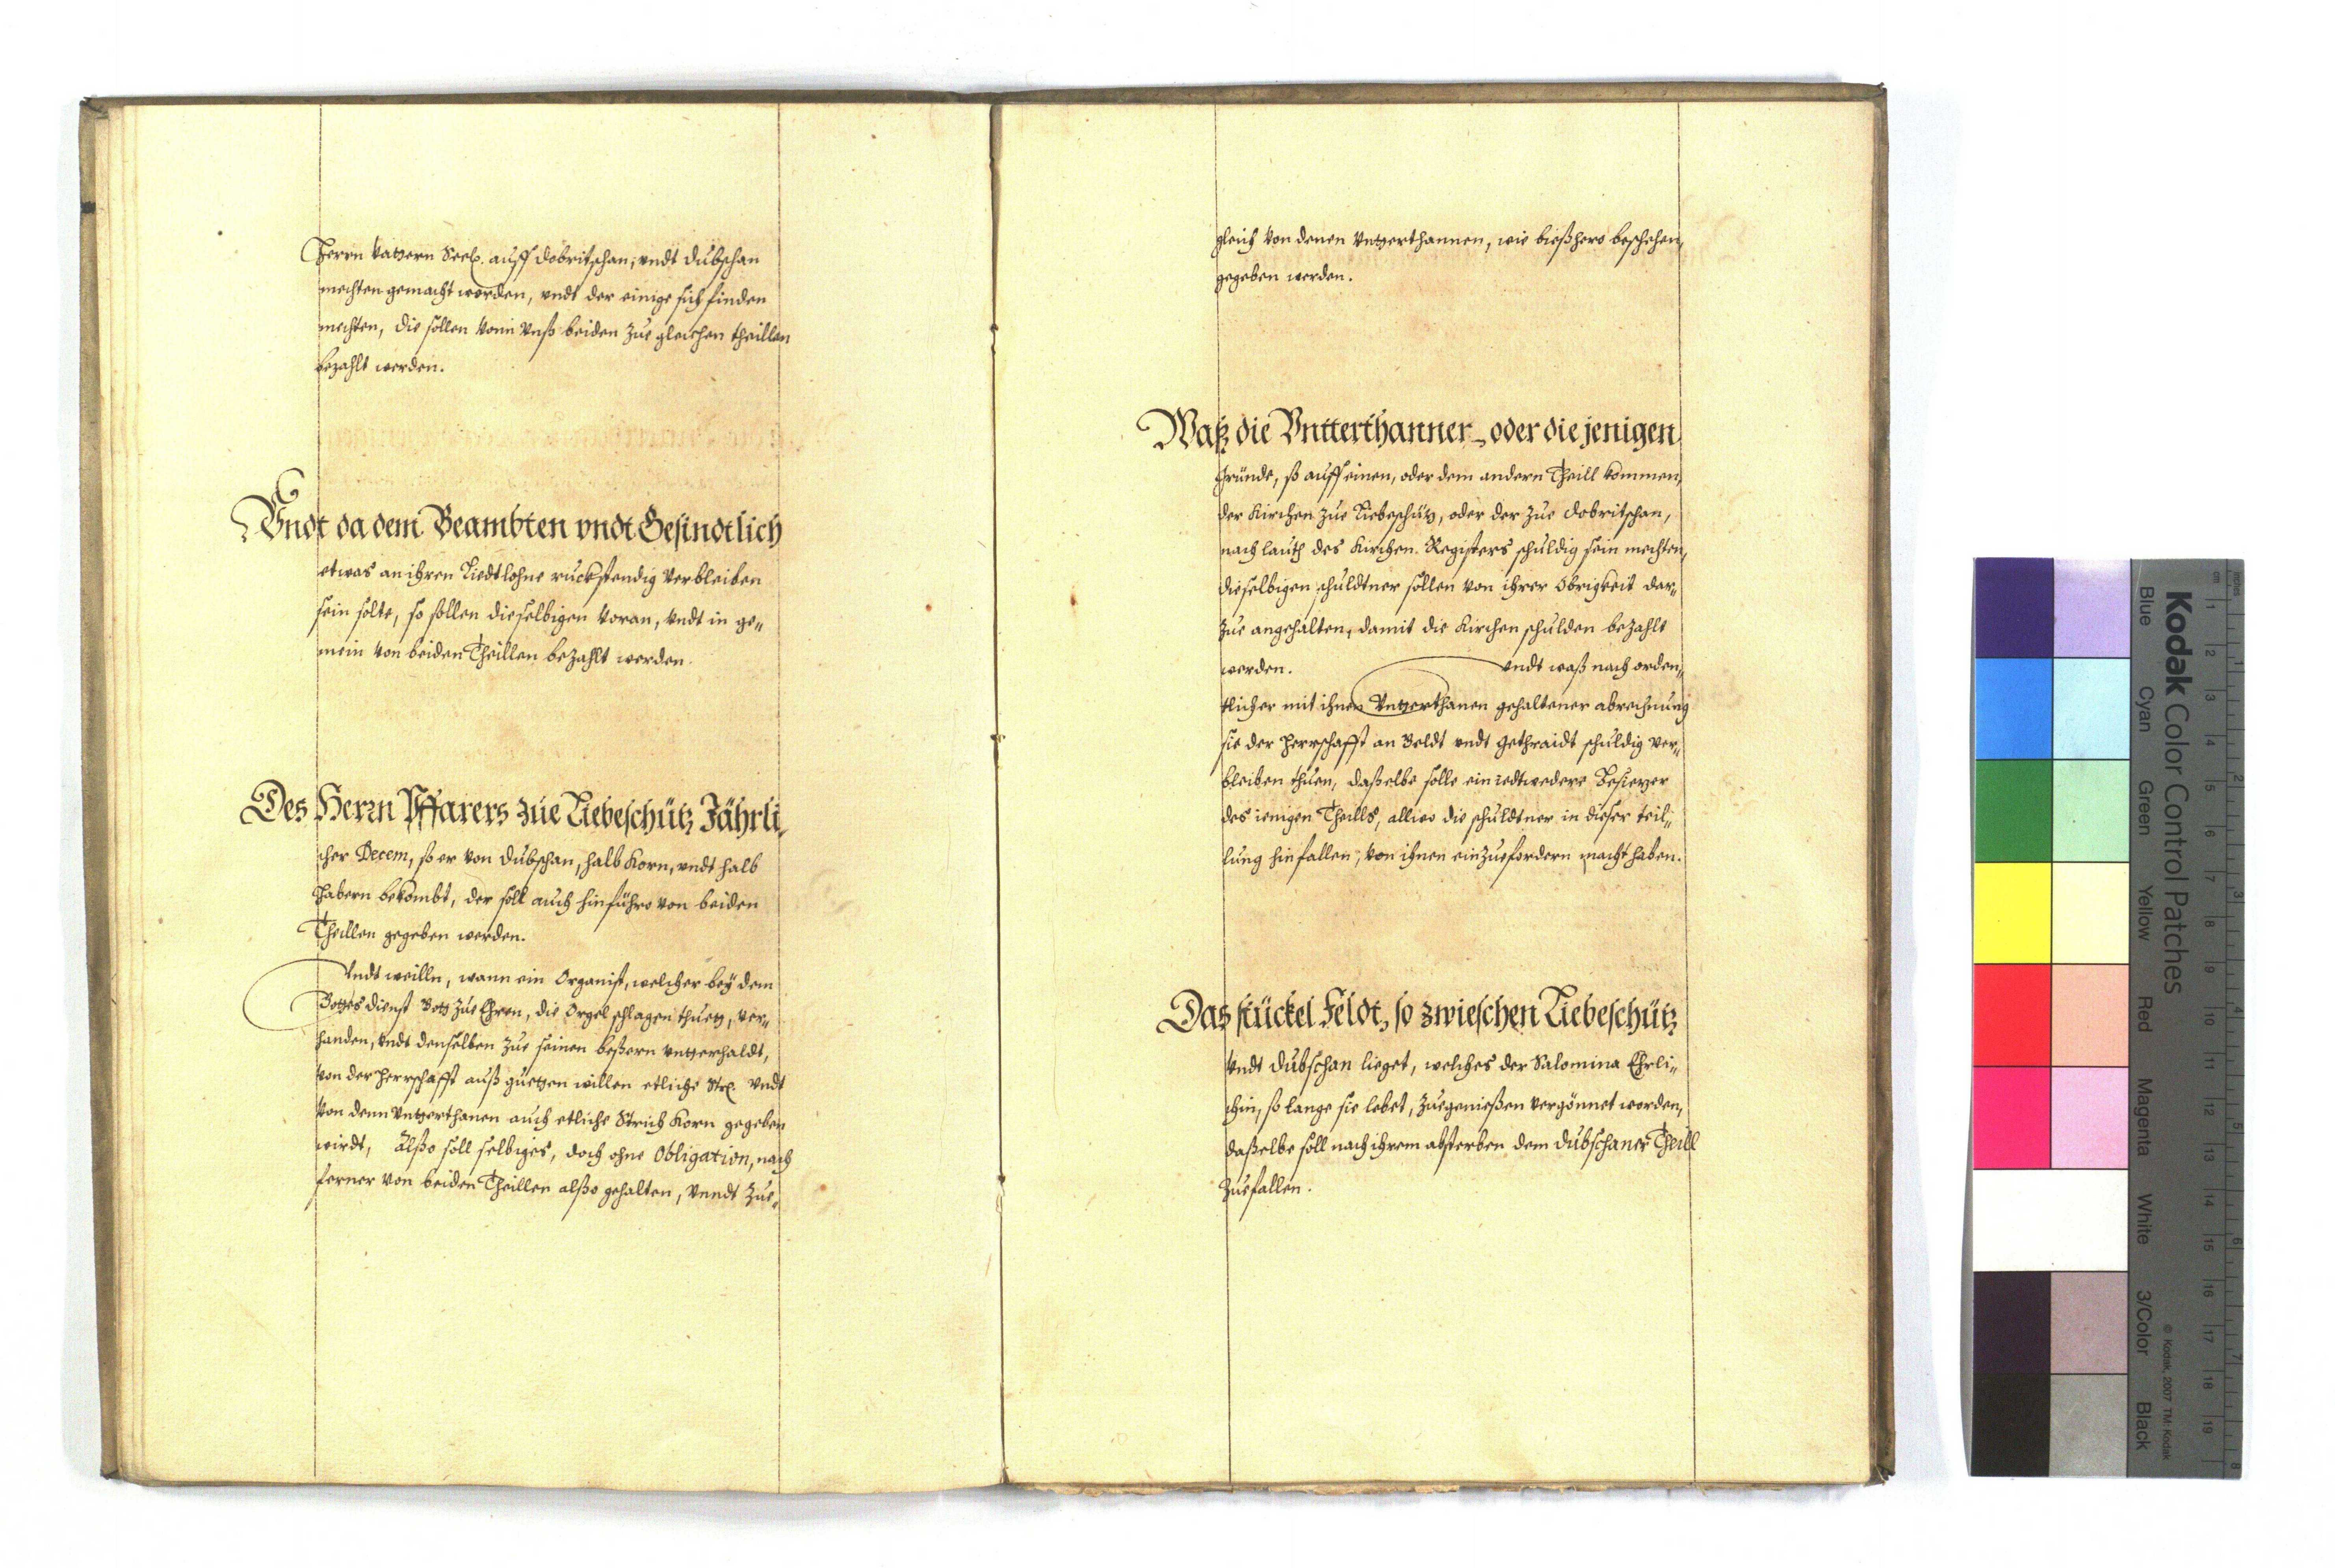 Herrn Vattern Seel. auff Dobritschan, undt Dubschan
mechten gemacht worden, undt der einige sich finden
mechten, die sollen vonn Unß beiden zue gleichen theillen
bezahlt werden.
Vndt da dem Beambten vndt Gesindtlich
etwas an ihren Liedtlohne ruckstendig verbleiben
sein solte, so sollen dieselbigen voran, undt in ge„
mein von beiden Theillen bezahlt werden.
Des Herrn Pffarers zue Liebeschütz Jährli„
cher Decem, so er von Dubschan, halb Korn, undt halb
Habern bekombt, der soll auch hinführo von beiden
Theillen gegeben werden.
Undt weilln, wann ein Organist, welcher bey dem
Gottesdienst Gott zue Ehren, die Orgel schlagen thuett, ver„
handen, undt denselben zue seinen beßern untterhaldt,
von der Herrschafft auß guetten willen etliche Str. undt
von denn Untterthanen auch etliche Strich Korn gegeben
wirdt, Alßo soll selbiges, doch ohne Obligation, nach
ferner von beiden Theillen alßo gehalten, unndt zue„
gleich von denen Untterthannen, wie bießhero beschehen,
gegeben werden.
Waß die Vntterthanner, oder die jenigen
Gründe, so auff einen, oder dem andern Theill kommen,
der Kirchen zue Liebeschütz, oder der zue Dobritschan,
nach lauth des Kirchen Registers schuldig sein mechten,
dieselbigen schuldtner sollen von ihrer Obrigkeit dar„
zue angehalten, damit die Kirchen schulden bezahlt
werden. Undt waß nach orden„
tlicher mit ihnen Untterthanen gehaltener abrechnung
sie der Herrschafft an Geldt undt Gethraidt schuldig ver„
bleiben thuen, daßelbe solle ein iedtwedere Besiezer
des ienigen Theills, allwo die schuldtner in dieser teil„
lung hinfallen, von ihnen einzuefordern macht haben.
Das stückel Feldt, so zwieschen Liebeschütz
undt Dubschan lieget, welches der Salomina Ehrli„
chin, so lange sie lebet, zuegenießen vergönnet worden,
daßelbe soll nach ihrem absterben dem Dubschaner Theill
zuefallen.
Kodak Color Control Patches
© Kodak, 2007 TM: Kodak
Blue Cyan Green Yellow Red Magenta White 3/Color Black
inches 1 2 3 4 5 6 7 8
cm 1 2 3 4 5 6 7 8 9 10 11 12 13 14 15 16 17 18 19